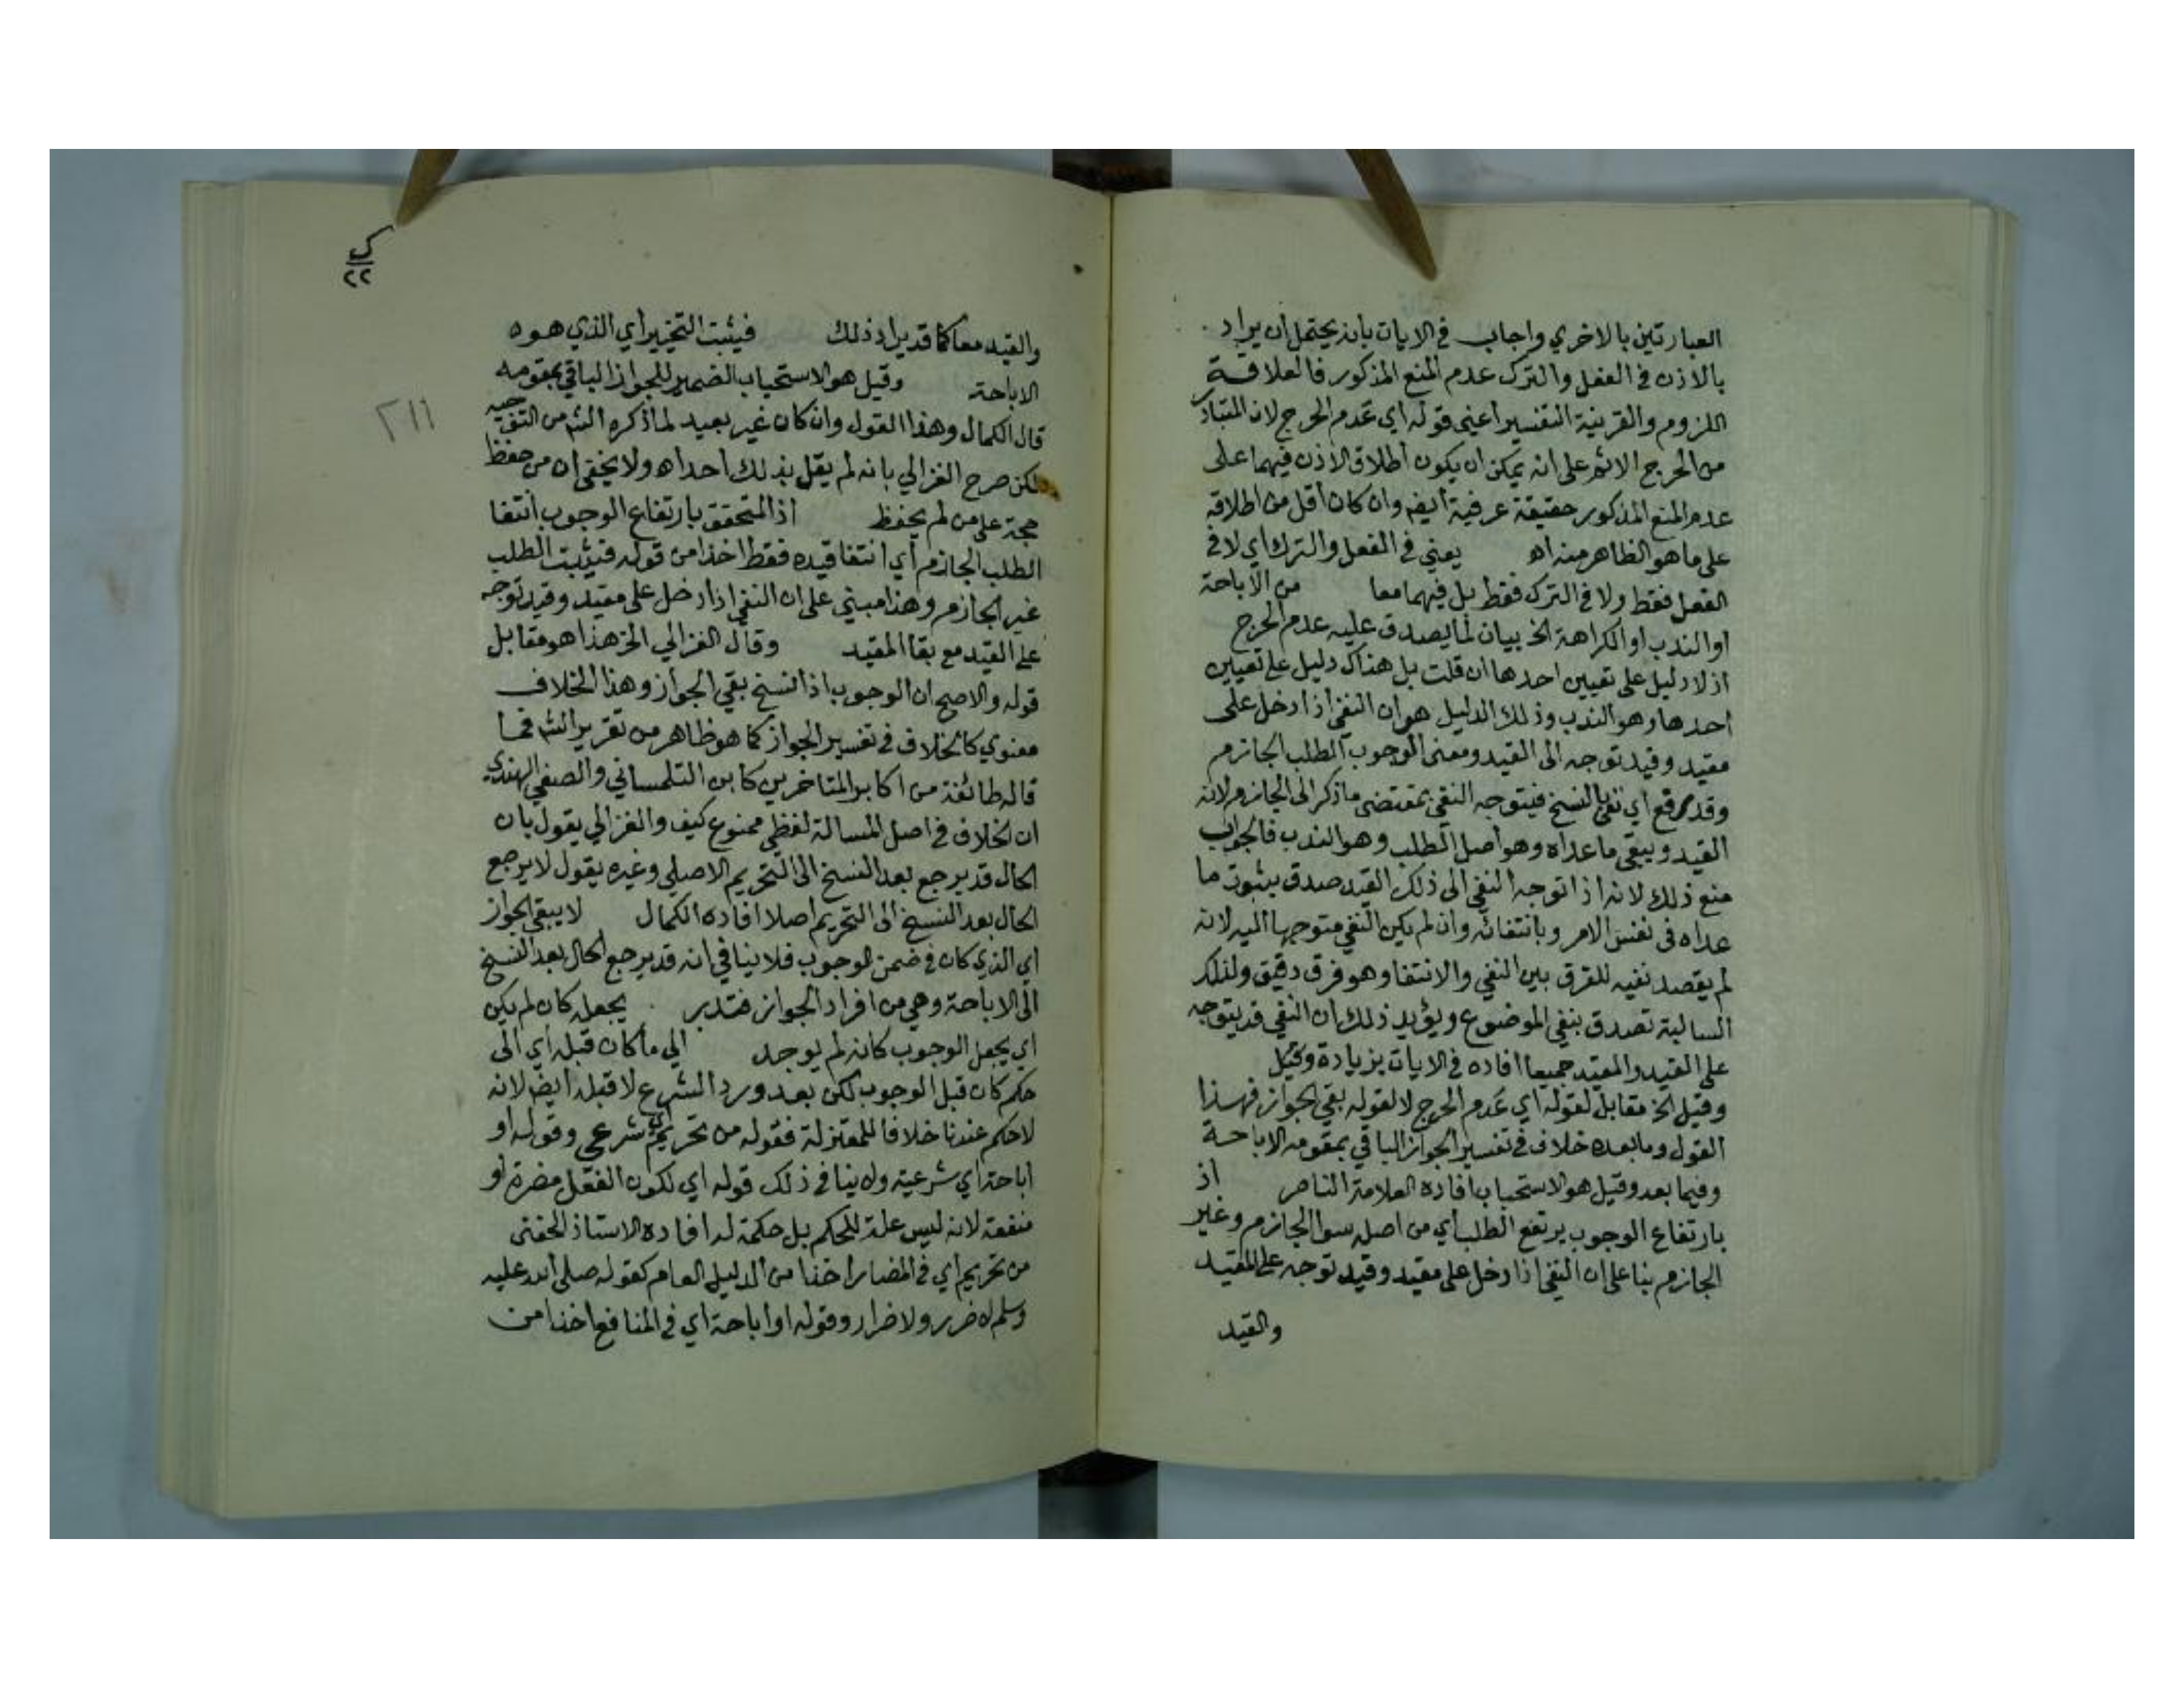 العبارتين بالاخري واجاب في الايات بانه يحتمل ان يراد
بالاذن في الفعل والترك عدم المنع المذكور فالعلاقة
اللزوم والقرينة التفسير اعني قوله اي عدم الحرج لان المتبادر
من الحرج الاثم على انه يمكن ان يكون اطلاق الاذن فيهما على
عدم المنع المذكور حقيقة عرفية ايضا وان كان اقل من اطلاقه
على ما هو الظاهر منه اه يعني في الفعل والترك اي لا في
الفعل فقط ولا في الترك فقط بل فيهما معا من الاباحة
او الندب او الكراهة الخ بيان لما يصدق عليه عدم الحرج
اذ لا دليل على تعيين احدها ان قلت بل هناك دليل على تعيين
احدها وهو الندب وذلك الدليل هو ان النفي اذا دخل على
مقيد وقيد توجه الى القيد ومعنى الوجوب الطلب الجازم
وقد رفع اي نفى بالنسخ فيتوجه النفي بمقتضى ما ذكر الى الجازم لانه
القيد ويبقى ما عداه وهو اصل الطلب وهو الندب فالجواب
منع ذلك لانه اذا توجه النفي الى ذلك القيد صدق بثبوت ما
عداه في نفس الامر وبانتفائه وان لم يكن النفي متوجها اليه لانه
لم يقصد نفيه للفرق بين النفي والانتفا وهو فرق دقيق ولذلك
السالبة تصدق بنفي الموضوع ويؤيد ذلك ان النفي قد يتوجه
على القيد والمقيد جميعا افاده في الايات بزيادة وقيل
وقيل الخ مقابل لقوله اي عدم الحرج لا لقوله بقي الجواز فهذا
القول وما بعده خلاف في تفسير الجواز الباقي بمقومه الاباحة
وفيما بعد وقيل هو الاستحباب افاده العلامة الناصر اذ
بارتفاع الوجوب يرتفع الطلب اي من اصله سوا الجازم وغير
الجازم بنا على ان النفي اذا دخل على مقيد وقيد توجه على المقيد
والقيد
ك
٢٢
٢١١
والقيد معا كما قد يراد ذلك فيثبت التخيير اي الذي هو
الاباحة وقيل هو الاستحباب الضمير للجواز الباقي بمقومه
قال الكمال وهذا القول وان كان غير بعيد لما ذكره الش من التوجيه
لكن صرح الغزالي بانه لم يقل بذلك احد اه ولا يخفى ان من حفظ
حجة على من لم يحفظ اذ المتحقق بارتفاع الوجوب انتفا
الطلب الجازم اي انتفا قيده فقط اخذا من قوله فيثبت الطلب
غير الجازم وهذا مبني على ان النفي اذا دخل على مقيد وقيد توجه
على القيد مع بقا المقيد وقال الغزالي الخ هذا هو مقابل
قوله والاصح ان الوجوب اذا نسخ بقي الجواز وهذا الخلاف
معنوي كالخلاف في تفسير الجواز كما هو ظاهر من تقرير الش فما
قاله طائفة من اكابر المتاخرين كابن التلمساني والصفي الهندي
ان الخلاف في اصل المسالة لفظي ممنوع كيف والغزالي يقول بان
الحال قد يرجع بعد النسخ الى التحريم الاصلي وغيره يقول لا يرجع
الحال بعد النسخ الى التحريم اصلا افاده الكمال لا يبقى الجواز
اي الذي كان في ضمن الوجوب فلا ينافي انه قد يرجع الحال بعد النسخ
الى الاباحة وهي من افراد الجواز فتدبر يجعله كان لم يكن
اي يجعل الوجوب كانه لم يوجد الى ما كان قبله اي الى
حكم كان قبل الوجوب لكن بعد ورود الشرع لا قبله ايضا لانه
لا حكم عندنا خلافا للمعتزلة فقوله من تحريم اي شرعي وقوله او
اباحة اي شرعية ولا ينافي ذلك قوله اي لكون الفعل مضرة او
منفعة لانه ليس علة للحكم بل حكمة له افاده الاستاذ الحفني
من تحريم اي في المضار اخذا من الدليل العام كقوله صلى الله عليه
وسلم لا ضرر ولا ضرار وقوله او اباحة اي في المنافع اخذا من